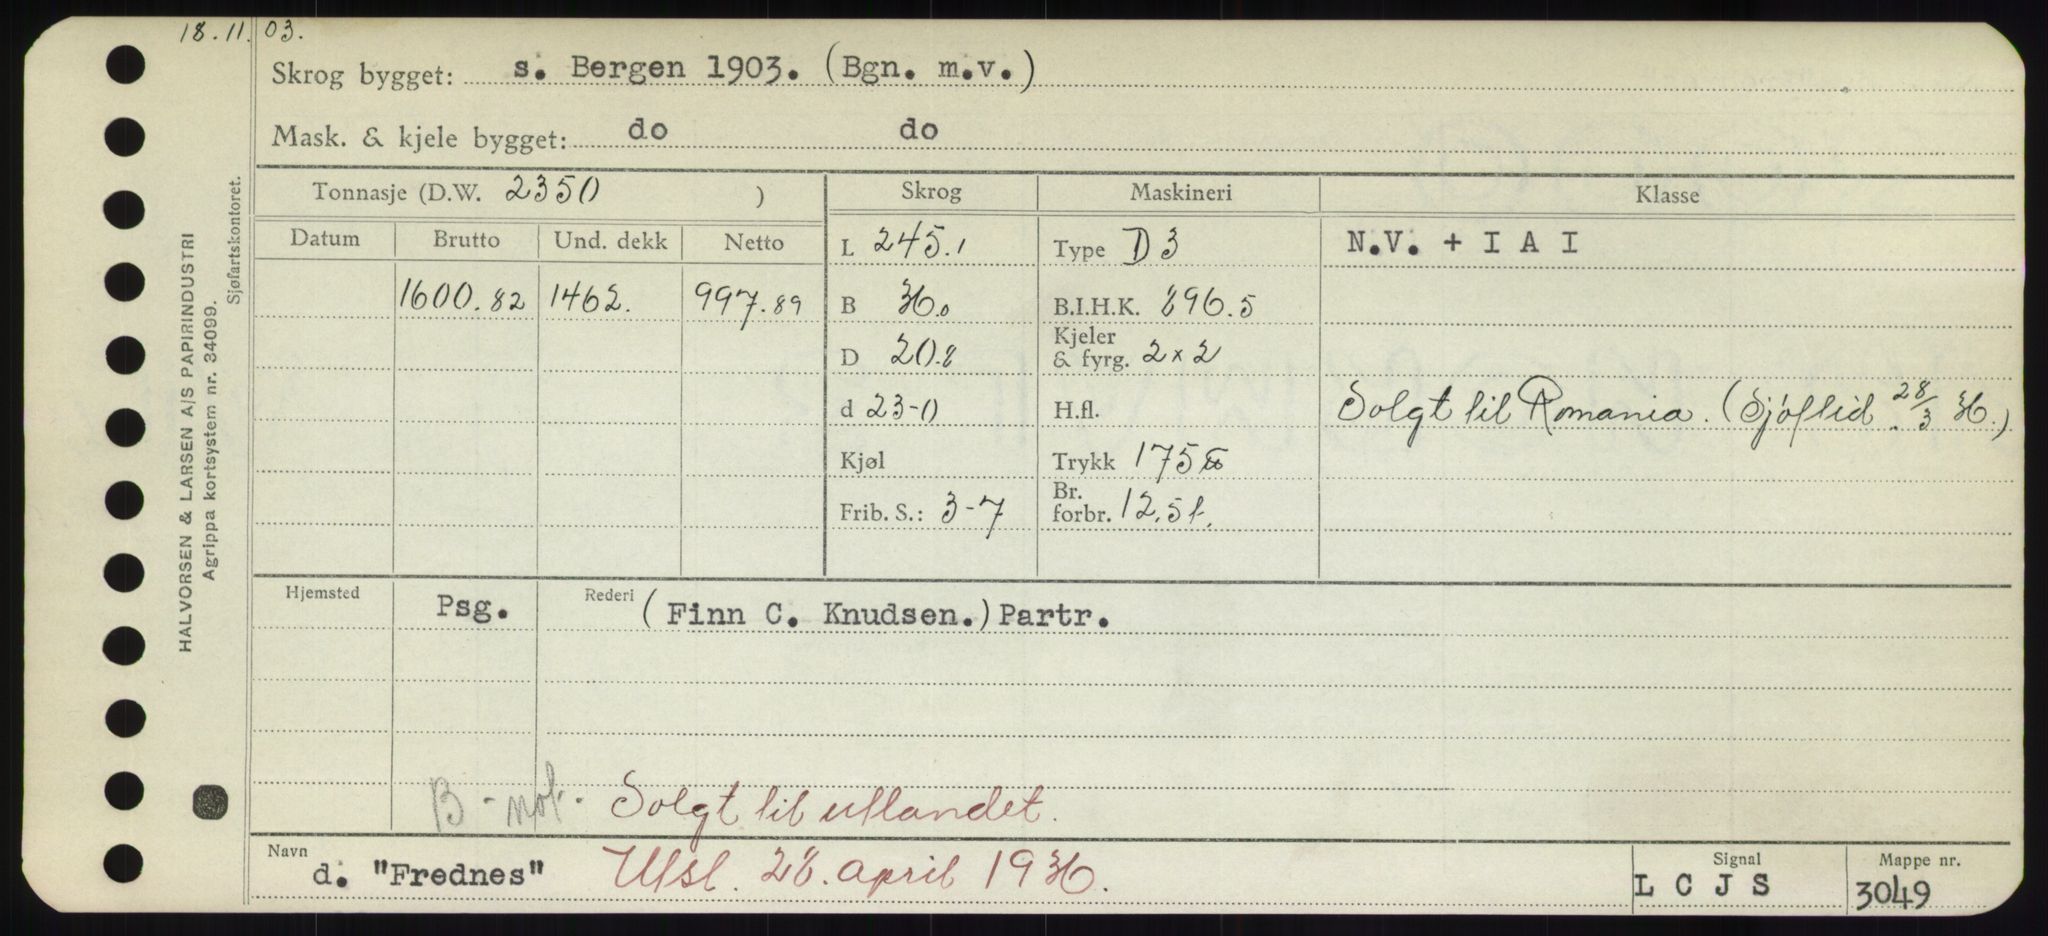 18.11.03.
Skrog bygget: s. Bergen 1903. (Bgn. m.v.)
Mask. & kjele bygget: do do
Tonnasje (D.W. 2350 ) Skrog Maskineri Klasse
Datum Brutto Und. dekk Netto L 245.1 Type D 3 N.V. + I A I
1600.82 1462. 997.89 B 36.0 B.I.H.K. 896.5
D 20.8 Kjeler & fyrg. 2 x 2
d 23-0 H.fl. Solgt til Romania. (Sjøftid. 28/3 36.)
Kjøl Trykk 175 lb
Frib. S.: 3-7 Br. forbr. 12,5 t.
Hjemsted Psg. Rederi (Finn C. Knudsen.) Partr.
B-not. Solgt til utlandet.
Navn d. "Frednes" Utsl. 28. april 1936. Signal L C J S Mappe nr. 3049
HALVORSEN & LARSEN A/S PAPIRINDUSTRI
Agrippa kortsystem nr. 34099.
Sjøfartskontoret.